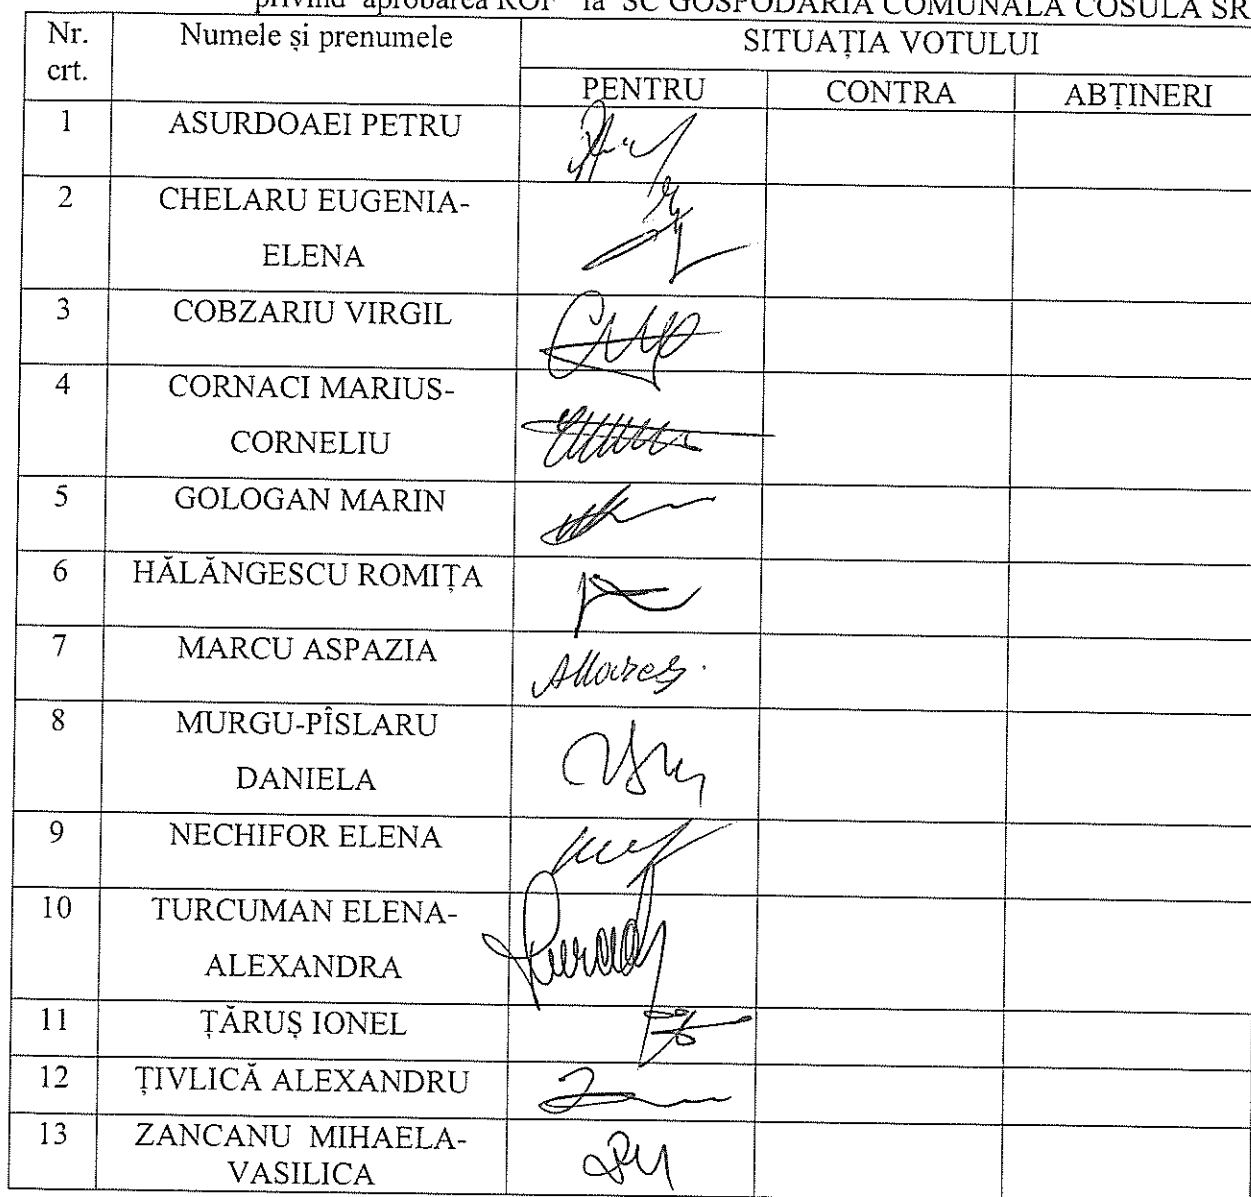 privind aprobarea ROF la SC GOSPODARIA COMUNALA COSULA SR
Nr. crt. Numele și prenumele SITUAȚIA VOTULUI
PENTRU CONTRA ABȚINERI
1 ASURDOAEI PETRU
2 CHELARU EUGENIA-
ELENA
3 COBZARIU VIRGIL
4 CORNACI MARIUS-
CORNELIU
5 GOLOGAN MARIN
6 HĂLĂNGESCU ROMIȚA
7 MARCU ASPAZIA
8 MURGU-PÎSLARU
DANIELA
9 NECHIFOR ELENA
10 TURCUMAN ELENA-
ALEXANDRA
11 ȚĂRUȘ IONEL
12 ȚIVLICĂ ALEXANDRU
13 ZANCANU MIHAELA-
VASILICA